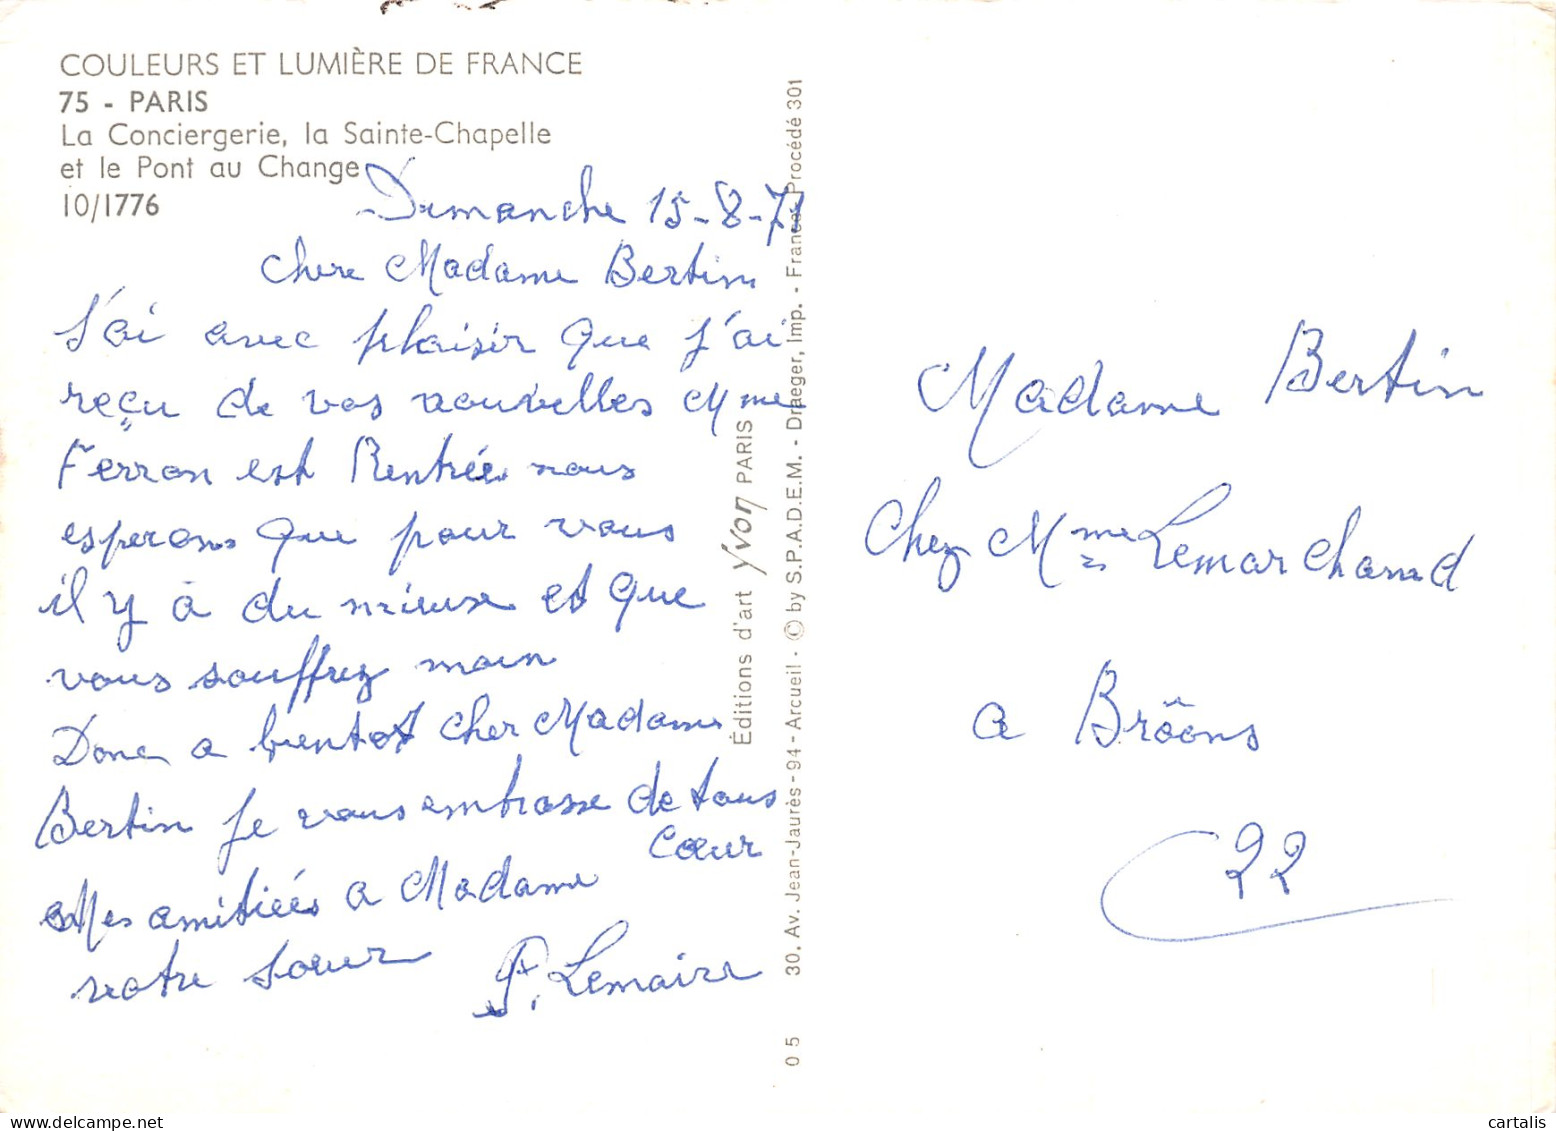 COULEURS ET LUMIÈRE DE FRANCE
75 - PARIS
La Conciergerie, la Sainte-Chapelle
et le Pont au Change
10/1776
Dimanche 15-8-71
chere Madame Bertin
J'ai avec plaisir que j'ai
reçu de vos nouvelles Mme
Ferron est Rentrée nous
esperons que pour vous
il y à du mieux et que
vous souffrez moin
Donc a bientot cher Madame
Bertin je vous embrasse de tous
cœur
Mes amitiées a Madame
votre sœur P. Lemaire
Éditions d'art Yvon PARIS
30, Av. Jean-Jaurès - 94 - Arcueil - © by S.P.A.D.E.M. - Draeger, Imp. - France Procédé 301
0 5
Madame Bertin
chez Mme Lemarchand
a Brôons
22
cartalis